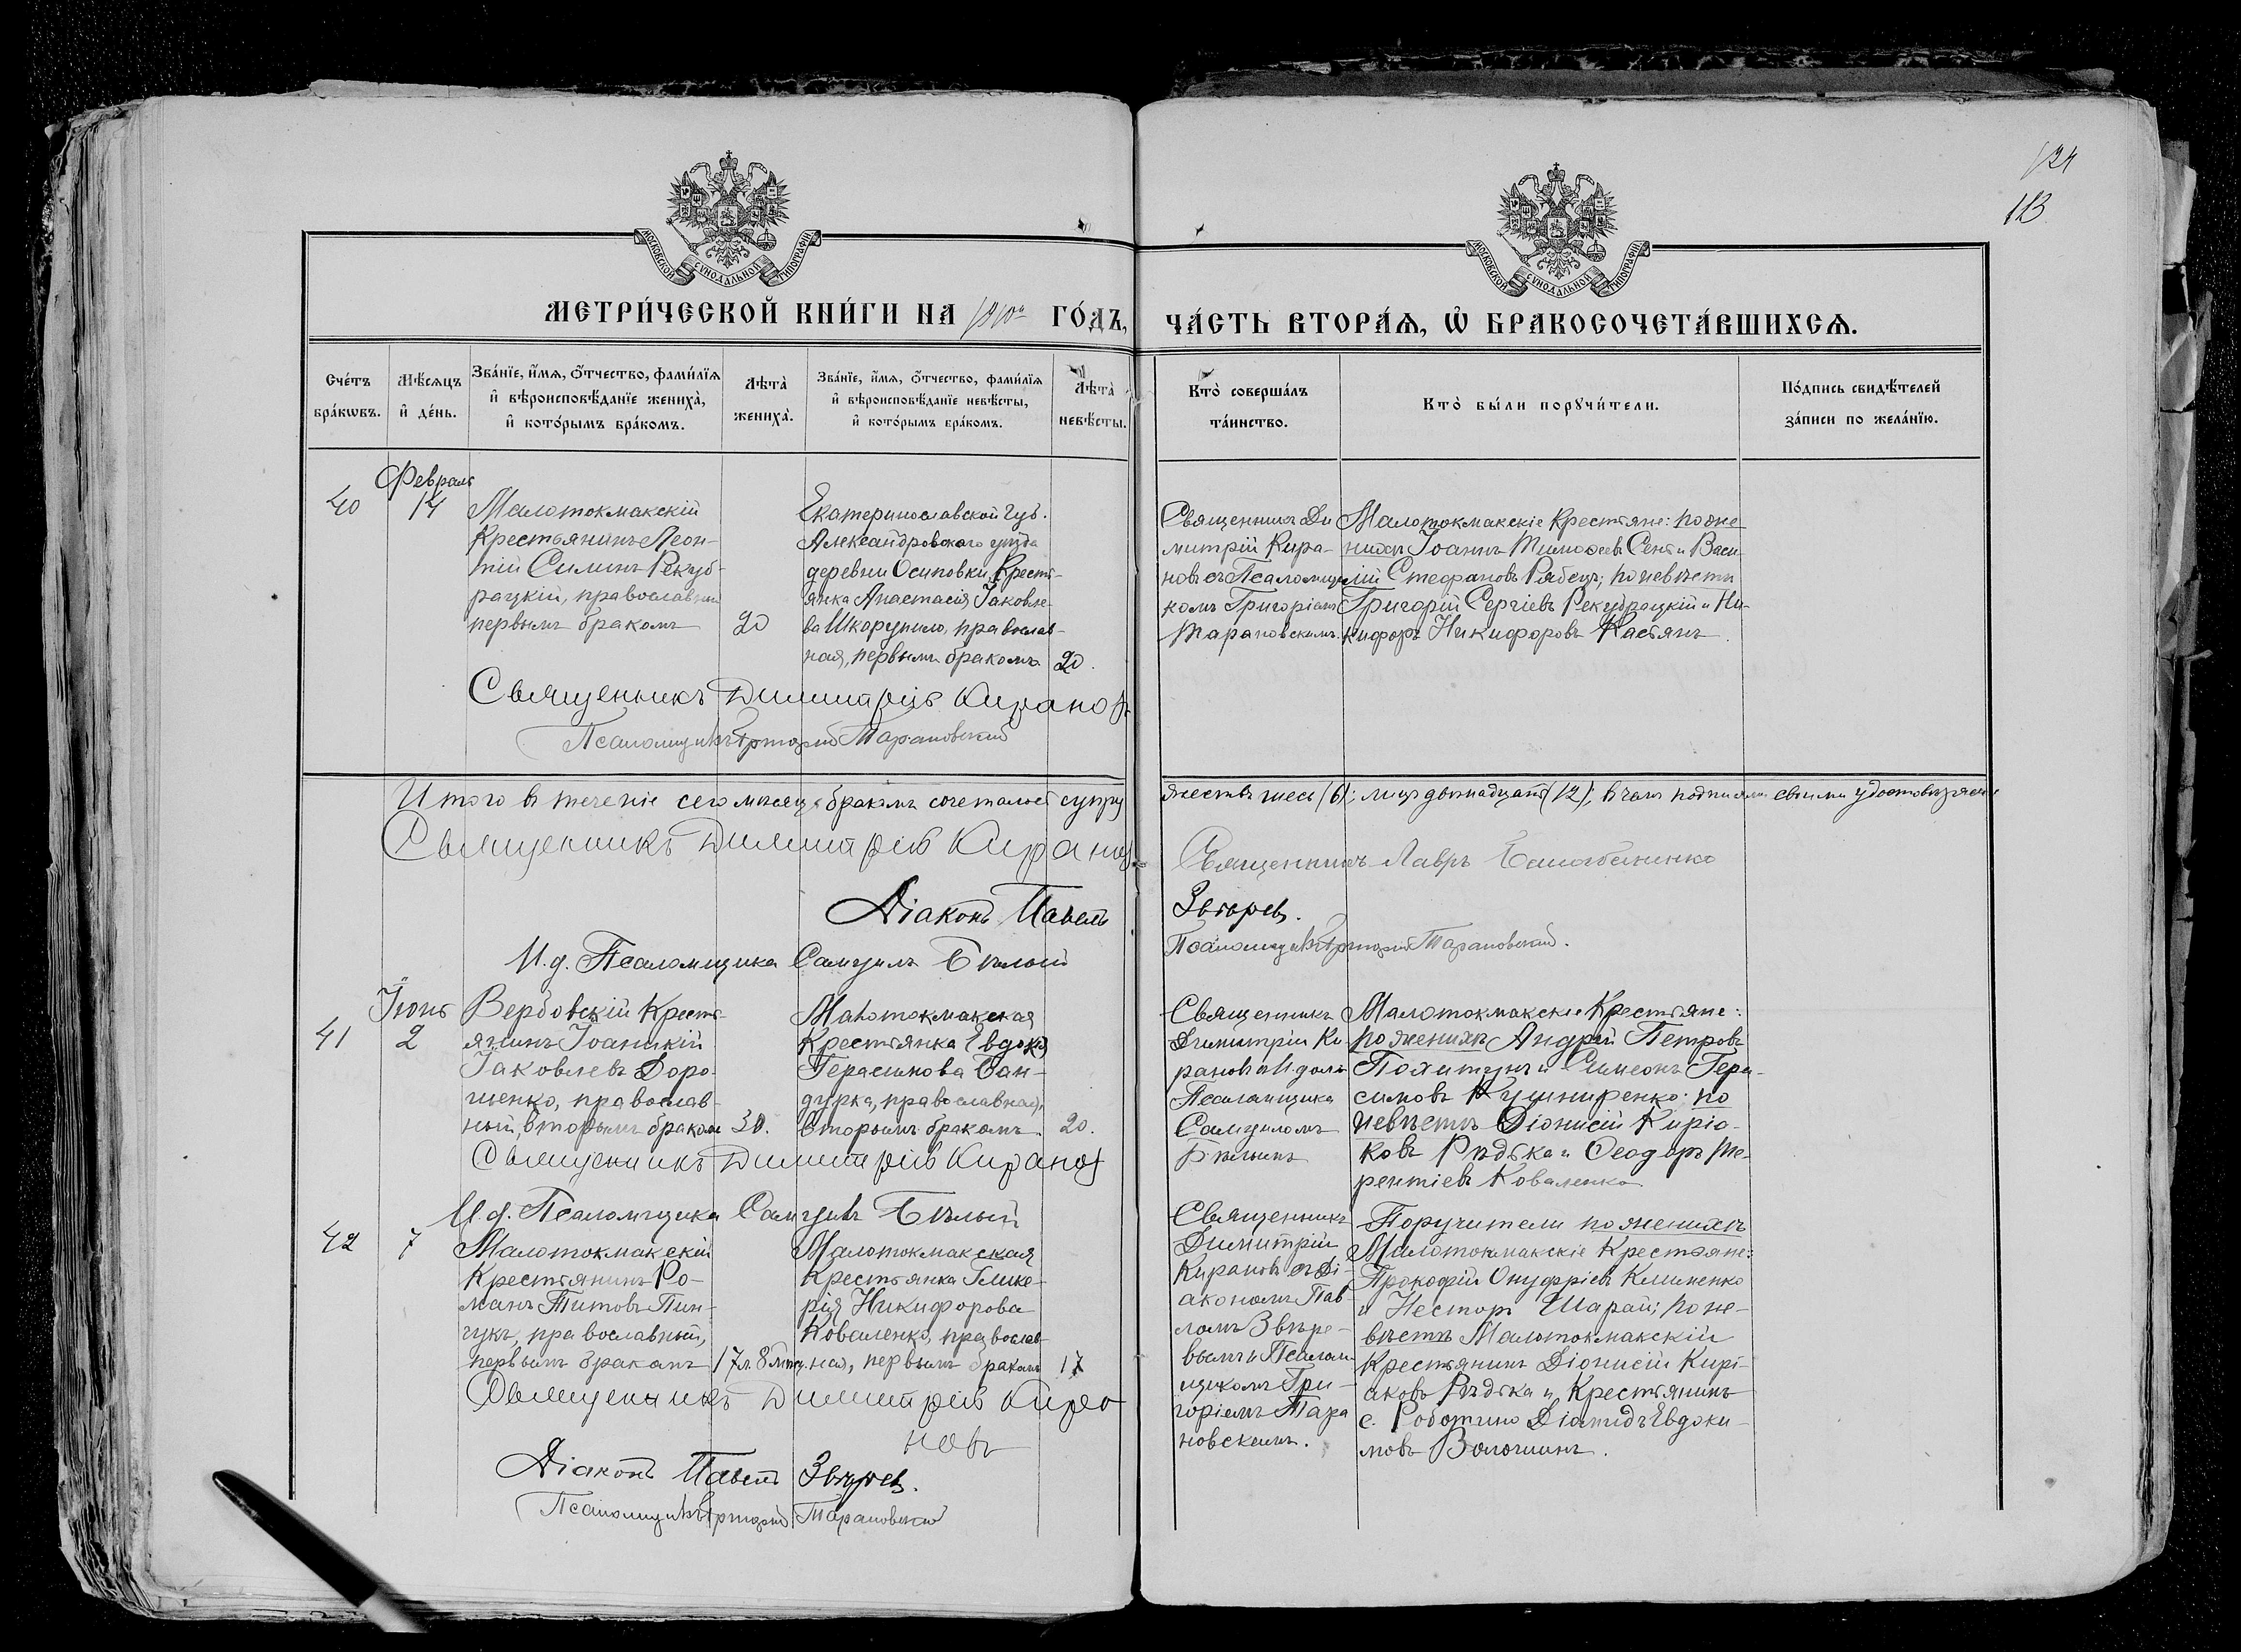 124
113
МОСКОВСКОЙ СУНОДАЛЬНОЙ ТИПОГРАФІИ
МОСКОВСКОЙ СУНОДАЛЬНОЙ ТИПОГРАФІИ
МЕТРИ́ЧЕСКОЙ КНИ́ГИ НА 1910 ГО́ДЪ,
ЧА́СТЬ ВТОРА́Ѧ, Ѿ БРАКОСОЧЕТА́ВШИХСѦ.
Сче́тъ
бра́кѡвъ.
Мѣ́сѧцъ
и҆ де́нь.
Зва́нїе, и҆́мѧ, ѻ҆́тчество, фами́лїѧ
и҆ вѣроисповѣ́данїе жениха̀,
и҆ кото́рымъ бра́комъ.
Лѣта̀
жениха̀.
Зва́нїе, и҆́мѧ, ѻ҆́тчество, фами́лїѧ
и҆ вѣроисповѣ́данїе невѣ́сты,
и҆ кото́рымъ бра́комъ.
Лѣта̀
невѣ́сты.
Кто̀ соверша́лъ
та́инство.
Кто̀ бы́ли порꙋчи́тели.
По́дпись свидѣ́телей
за́писи по жела́нїю.
Февраль
40
14
Малотокмакскій
крестьянинъ Леон-
тій Силинъ Рекуб-
рацкій, православный
первымъ бракомъ
20
Екатеринославской губ.
Александровскаго уѣзда
деревни Осиповки, Кресть-
янка Анастасія Іаковле-
ва Шкорупило, православ-
ная, первымъ бракомъ
20.
Священникъ Ди
митрій Кира-
новъ съ Псаломщи
комъ Григоріемъ
Тарановскимъ.
Малотокмакскіе крестьяне: по же
нихѣ Іоаннъ Тимоѳеевъ Сент и Васи
лій Стефановъ Рябецъ; по невѣстѣ
Григорій Сергіевъ Рекубрацкій и Ни-
кифоръ Никифоровъ Касьянъ.
Священникъ Димитрій Кирановъ
Псаломщикъ Григорій Тарановскій
Итого въ теченіе сего мѣсяца бракомъ сочеталось супру
жествъ шесть (6); лицъ двѣнадцать (12); въ чемъ подписями своими удостовѣряемъ
Священникъ Димитрій Кирановъ
Священникъ Лавръ
Діаконъ Павелъ
Звѣревъ.
И.д. Псаломщика Самуилъ Бѣлый
Псаломщикъ Григорій Тарановскій.
Іюнь
41
2
Вербовскій Кресть-
янинъ Іоаникій
Іаковлевъ Доро-
шенко, православ-
ный, вторымъ бракомъ
30.
Малотокмакская
Крестьянка Евдокія
Герасимова Бан-
дурка, православная,
вторымъ бракомъ.
20.
Священникъ
Димитрій Ки-
рановъ и И.долж.
Псаломщика
Самуиломъ
Бѣлымъ
Малотокмакскіе Крестьяне:
по женихѣ Андрей Петровъ
и Симеонъ Гера-
симовъ Кушниренко: по
невѣстѣ Діонисій Киріа-
ковъ Рѣдька и Ѳеодоръ Те-
рентіевъ Коваленко
Священникъ Димитрій Кирановъ
И.д. Псаломщика Самуилъ Бѣлый
42
7
Малотокмакскій
Крестьянинъ Ро-
манъ Титовъ Пин-
чукъ, православный,
первымъ бракомъ
17 л. 8 мѣс.
Малотокмакская
Крестьянка Глике-
рія Никифорова
Коваленко, православ-
ная, первымъ бракомъ
17
Священникъ
Димитрій
Кирановъ съ Ді-
акономъ Пав-
ломъ Звѣре-
вымъ и Псалом
щикомъ Гри-
горіемъ Тара
новскимъ.
Поручители по женихѣ
Малотокмакскіе Крестьяне:
Прокофій Онуфріевъ Клименко
и Несторъ Шарай; по не-
вѣстѣ Малотокмакскій
Крестьянинъ Діонисій Кирі-
аковъ Рѣдька и Крестьянинъ
с. Роботино Діомидъ Евдоки-
мовъ Волошинъ.
Священникъ Димитрій Кира
новъ
Діаконъ Павелъ Звѣревъ.
Псаломщикъ Григорій Тарановскій